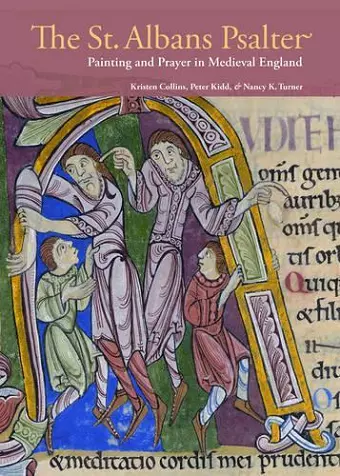 The St. Albans Psalter
Painting and Prayer in Medieval England
Kristen Collins, Peter Kidd, & Nancy K. Turner
UDITE H
om̅s gen
om̅s q
tis orb
Quiq
& fili
& meditatio cordis mei prudenti